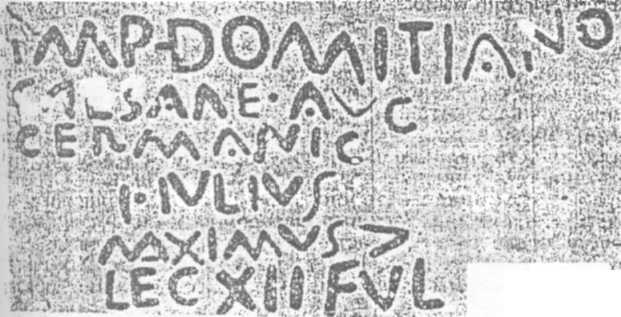 IMP·DOMITIANO
CAESARE·AVG
GERMANIC
L·IVLIVS
MAXIMVS >
LEG XII FVL